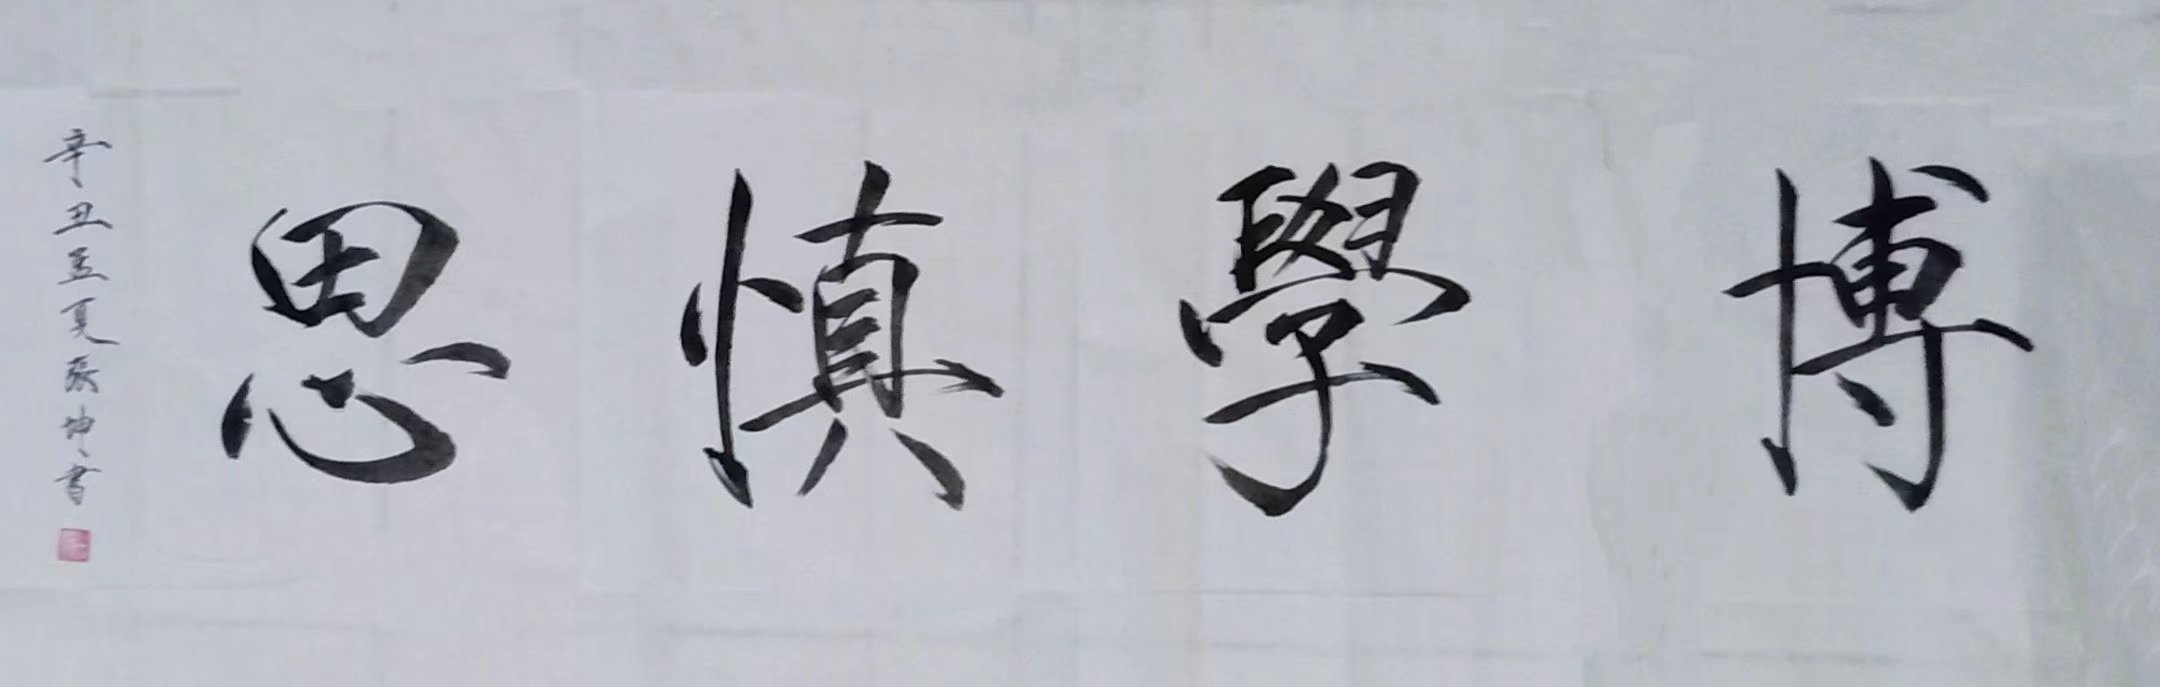 博學慎思
辛丑孟夏張坤書